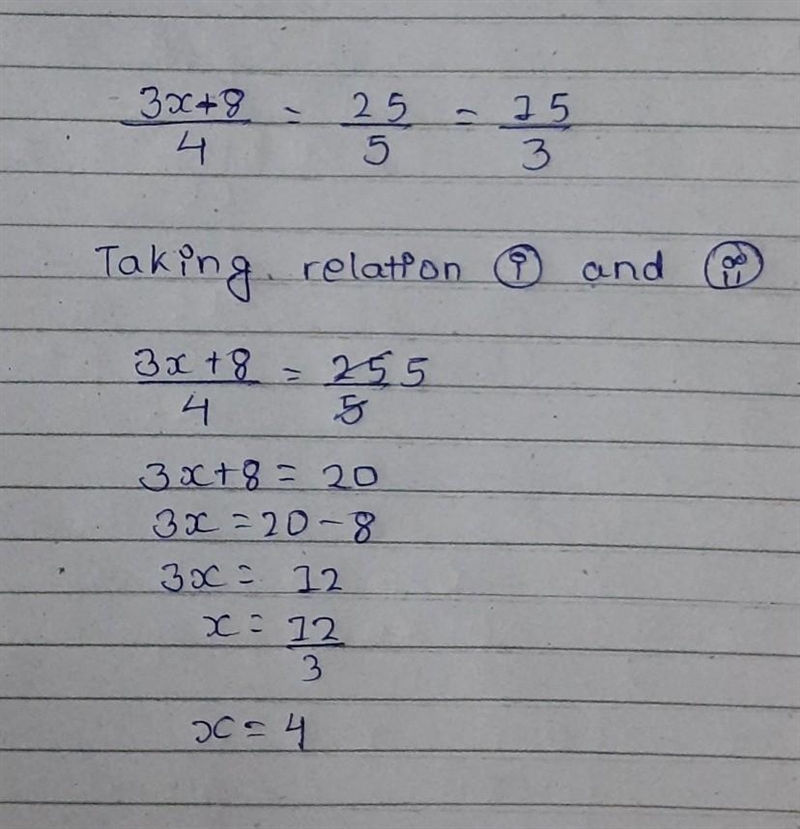 3x+8/4 = 25/5 = 15/3
Taking relation (i) and (ii)
3x+8/4 = 25/5 5
3x+8 = 20
3x = 20 - 8
3x = 12
x = 12/3
x = 4